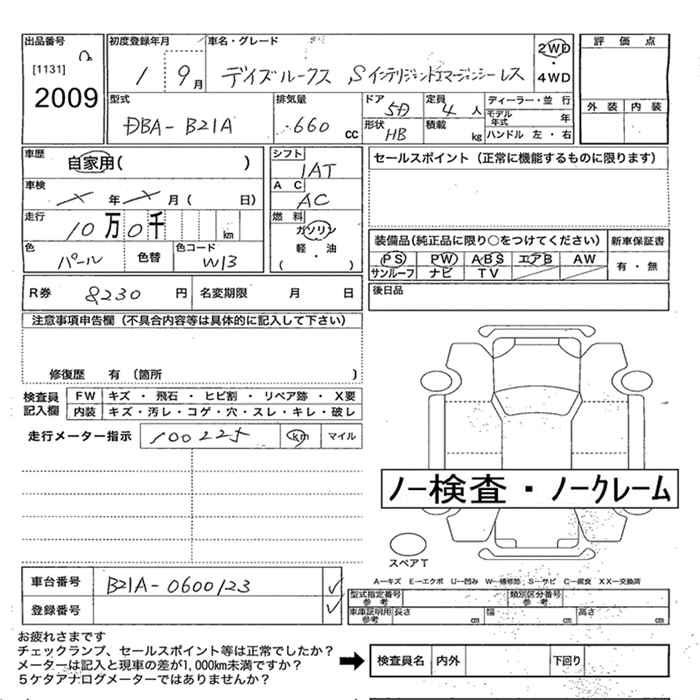 出品番号
[1131]
2009
初度登録年月
1 9月
車名・グレード
デイズルークス SインテリジェントエマージェンシーレS
2WD
・
4WD
評価点
外装 内装
型式
DBA-B21A
排気量
660 cc
ドア
5D
形状
HB
定員
4人
積載 kg
ディーラー・並行
モデル年式 年
ハンドル 左・右
車歴
自家用( )
車検
× 年 × 月( 日)
走行
10万0千 km
色
パール
色替
色コード
W13
シフト
IAT
AC
AC
燃料
ガソリン
軽・油
( )
セールスポイント(正常に機能するものに限ります)
装備品(純正品に限り○をつけてください)
新車保証書
PS PW ABS エアB AW
サンルーフ ナビ TV
有・無
後日品
R券 8230円 名変期限 月 日
注意事項申告欄(不具合内容等は具体的に記入して下さい)
修復歴 有〔箇所 〕
検査員記入欄
FW キズ・飛石・ヒビ割・リペア跡・X要
内装 キズ・汚レ・コゲ・穴・スレ・キレ・破レ
走行メーター指示 100225 km マイル
ノー検査・ノークレーム
スペアT
A−キズ E−エクボ U−凹み W−補修跡 S−サビ C−腐食 XX−交換済
車台番号 B21A-0600123 ✓
登録番号 ✓
型式指定番号 参考
類別区分番号 参考
車庫証明用参考 長さ cm 幅 cm 高さ cm
お疲れさまです
チェックランプ、セールスポイント等は正常でしたか?
メーターは記入と現車の差が1,000km未満ですか?
5ケタアナログメーターではありませんか?
検査員名 内外 下回り